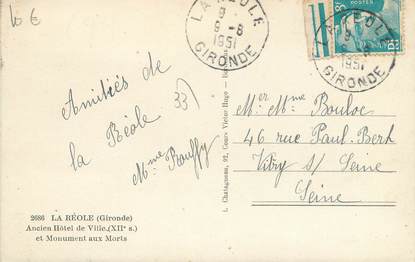 10 €
LA RÉOLE
9 - 8
1951
GIRONDE
LA RÉOLE
9 - 8
1951
GIRONDE
POSTES
Amitiés de
la Réole
33
Mme Rouffy
Mer Mme Bouloc
46 rue Paul-Bert
Vitry s/ Seine
Seine
L. Chatagneau, 92, Cours Victor Hugo
2686 LA RÉOLE (Gironde)
Ancien Hôtel de Ville (XIIe s.)
et Monument aux Morts